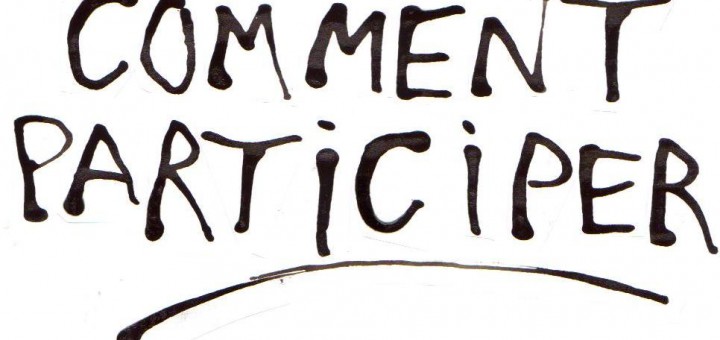 COMMENT
PARTICIPER